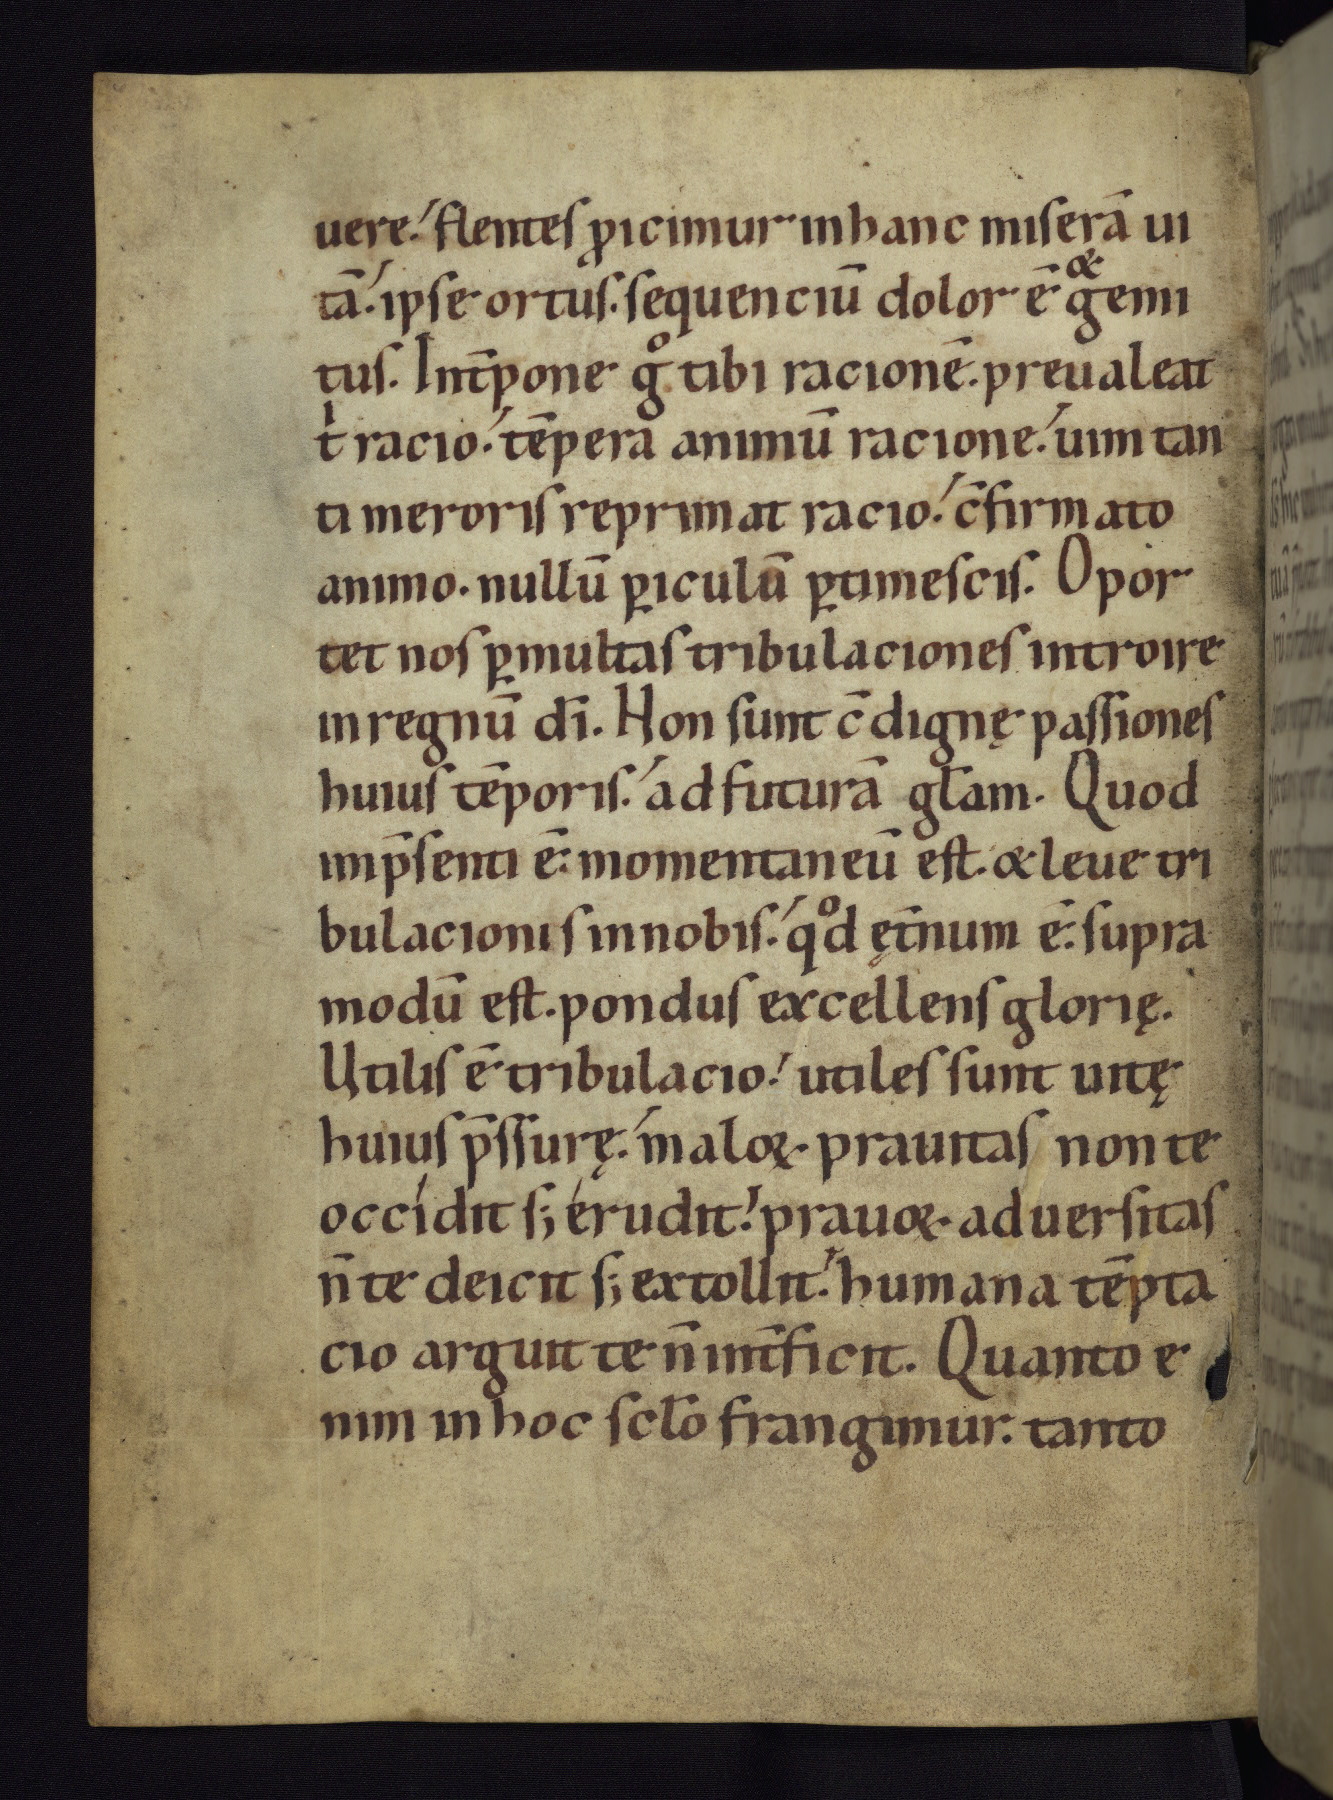 uere. flentes ꝓicimur in hanc miserā ui
tā. ipse ortus. sequenciū dolor ē & gemi
tus. Int̄pone gͦ tibi racionē. preualeat
tͥ racio. tēpera animū racione. uim tan
ti meroris reprimat racio. c̄firmato
animo. nullū ꝑiculū ꝑtimescis. Opor
tet nos ꝑ multas tribulaciones introire
in regnū dī. Non sunt c̄dignę passiones
huius tēporis. ad futurā gl̄am. Quod
in p̄senti ē. momentaneū est. & leue tri
bulacionis in nobis. qͦd ęt̄num ē. supra
modū est. pondus excellens glorię.
Utilis ē tribulacio. utiles sunt uitę
huius p̄ssurę. maloꝝ prauitas non te
occidit s; erudit. prauoꝝ aduersitas
n̄ te deicit s; extollit. humana tēpta
cio arguit te n̄ int̄ficit. Quanto e
nim in hoc sc̄lo frangimur. tanto